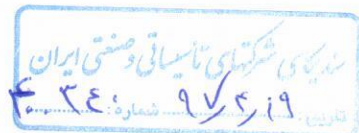 سندیکای شرکتهای تاسیساتی و صنعتی ایران
تاریخ: ۹۷/۴/۱۹ شماره: ۴۰۰۳۴۰